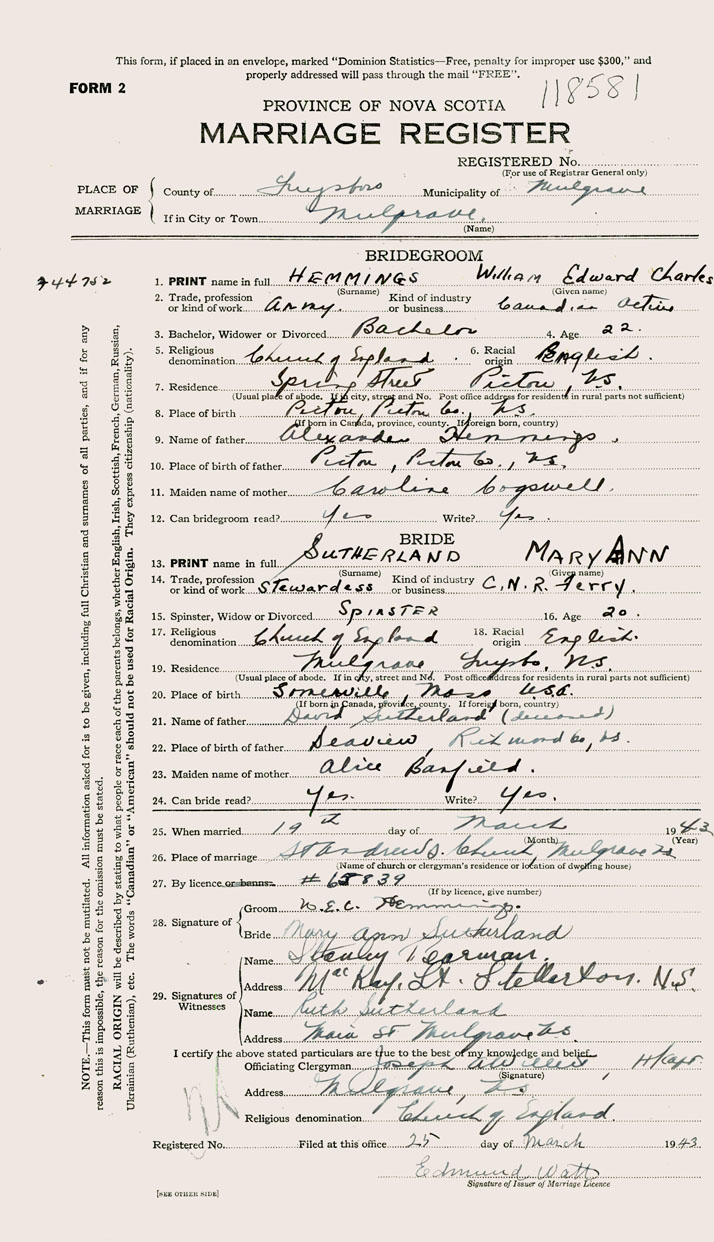 This form, if placed in an envelope, marked "Dominion Statistics—Free, penalty for improper use $300," and
properly addressed will pass through the mail "FREE".
FORM 2
118581
PROVINCE OF NOVA SCOTIA
MARRIAGE REGISTER
REGISTERED No.
(For use of Registrar General only)
PLACE OF MARRIAGE
County of Guysboro Municipality of Mulgrave
If in City or Town Mulgrave.
(Name)
BRIDEGROOM
1. PRINT name in full HEMMINGS William Edward Charles
(Surname) (Given name)
2. Trade, profession or kind of work Army. Kind of industry or business Canadian Active
3. Bachelor, Widower or Divorced Bachelor 4. Age 22.
5. Religious denomination Church of England. 6. Racial origin English.
7. Residence Spring Street Pictou, N.S.
(Usual place of abode. If in city, street and No. Post office address for residents in rural parts not sufficient)
8. Place of birth Pictou, Pictou Co., N.S.
(If born in Canada, province, county. If foreign born, country)
9. Name of father Alexander Hemmings.
10. Place of birth of father Pictou, Pictou Co., N.S.
11. Maiden name of mother Caroline Cogswell.
12. Can bridegroom read? Yes Write? Yes.
BRIDE
13. PRINT name in full SUTHERLAND MARY ANN
(Surname) (Given name)
14. Trade, profession or kind of work Stewardess Kind of industry or business C.N.R. Ferry.
15. Spinster, Widow or Divorced SPINSTER 16. Age 20.
17. Religious denomination Church of England 18. Racial origin English.
19. Residence Mulgrave Guysbo, N.S.
(Usual place of abode. If in city, street and No. Post office address for residents in rural parts not sufficient)
20. Place of birth Somerville, Mass U.S.A.
(If born in Canada, province, county. If foreign born, country)
21. Name of father David Sutherland (deceased)
22. Place of birth of father Seaview, Richmond Co, N.S.
23. Maiden name of mother Alice Barfield.
24. Can bride read? Yes. Write? Yes.
25. When married 19th day of March 1943
(Month) (Year)
26. Place of marriage St Andrew's Church, Mulgrave NS
(Name of church or clergyman's residence or location of dwelling house)
27. By licence or banns #65839
(If by licence, give number)
28. Signature of
Groom W.E.C. Hemmings.
Bride Mary Ann Sutherland
29. Signatures of Witnesses
Name Stanley Pearman.
Address MacKay, St. Stellarton. N.S.
Name Ruth Sutherland
Address Main St Mulgrave N.S.
I certify the above stated particulars are true to the best of my knowledge and belief.
Officiating Clergyman Joseph , H/Capt.
(Signature)
Address Mulgrave, N.S.
Religious denomination Church of England.
Registered No. Filed at this office 25 day of March 1943
Edmund Watt
Signature of Issuer of Marriage Licence
[SEE OTHER SIDE]
744752
NOTE.—This form must not be mutilated. All information asked for is to be given, including full Christian and surnames of all parties, and if for any
reason this is impossible, the reason for the omission must be stated.
RACIAL ORIGIN will be described by stating to what people or race each of the parents belongs, whether English, Irish, Scottish, French, German, Russian,
Ukrainian (Ruthenian), etc. The words "Canadian" or "American" should not be used for Racial Origin. They express citizenship (nationality).